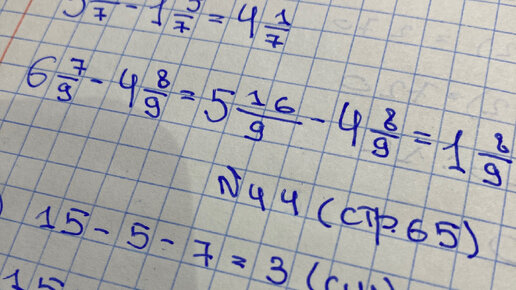 /7 - 1 5/7 = 4 1/7
6 7/9 - 4 8/9 = 5 16/9 - 4 8/9 = 1 8/9
№44 (стр. 65)
15 - 5 - 7 = 3
15